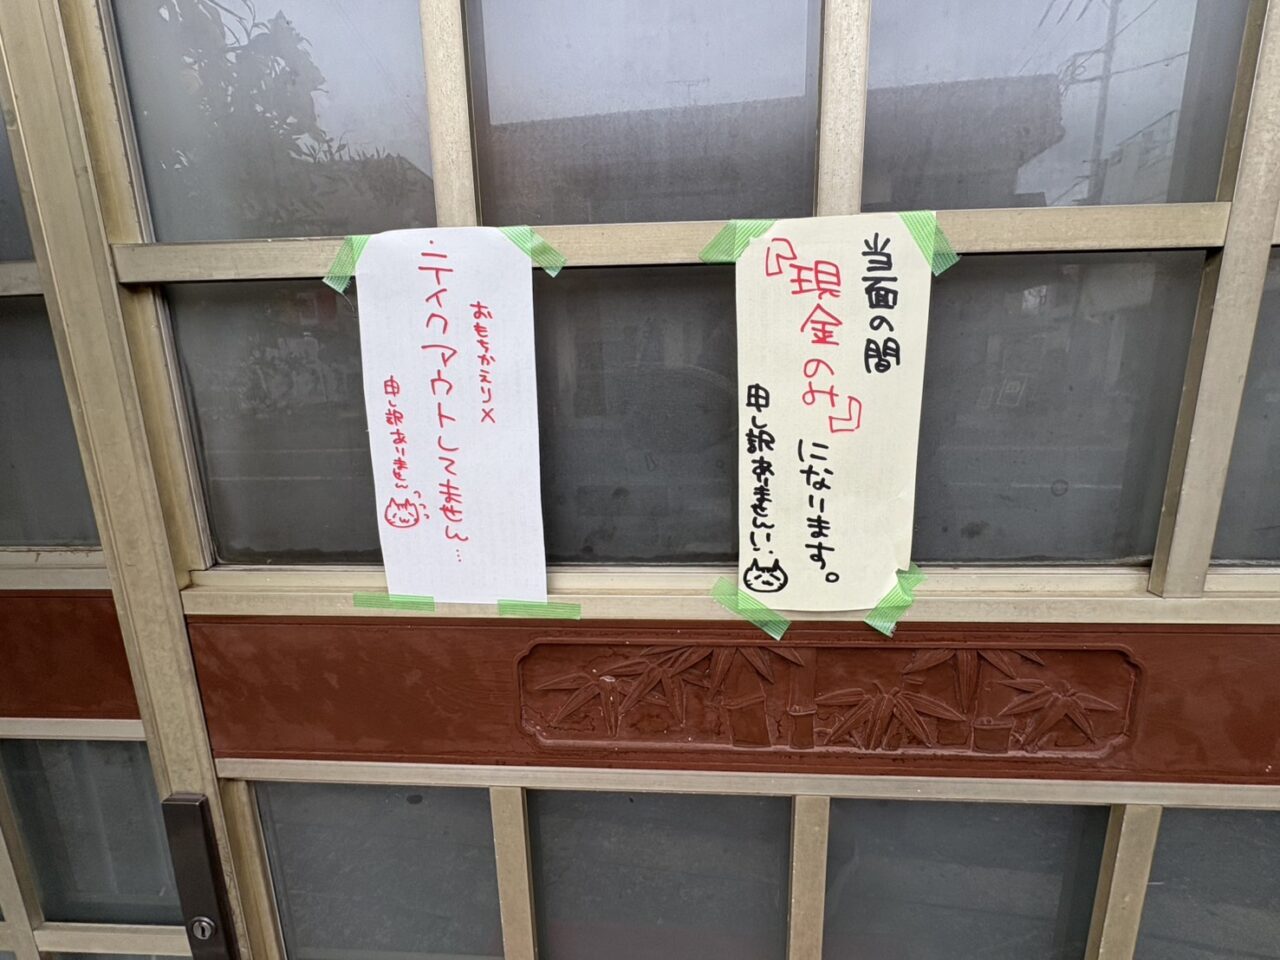 当面の間
『現金のみ』
になります。
申し訳ありません!!
おもちかえり×
・テイクアウトしてません…
申し訳ありません